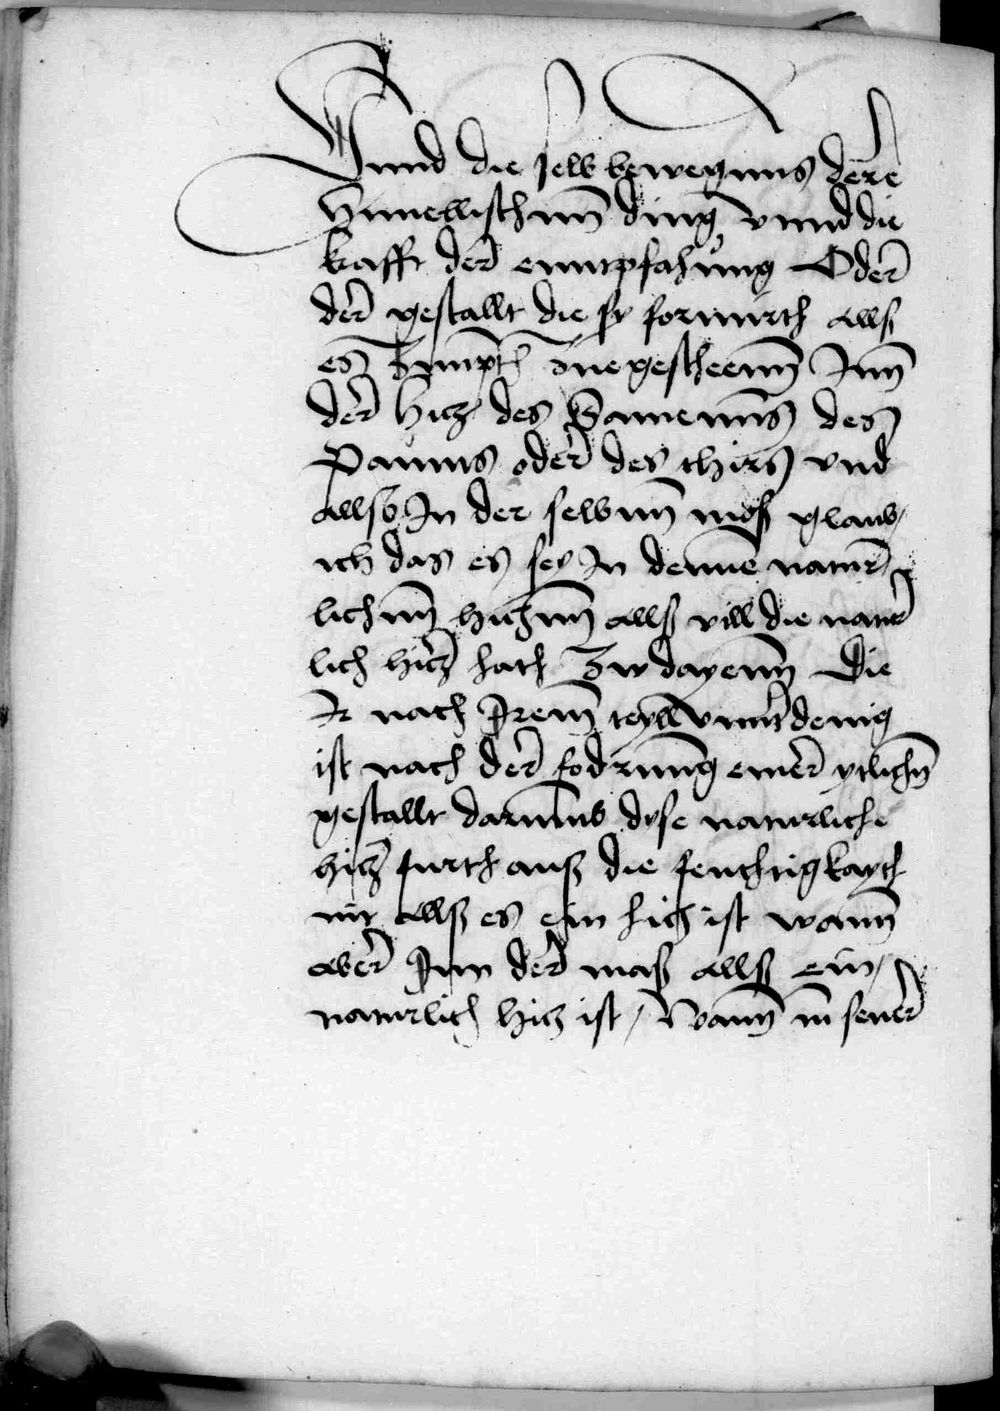 Vnnd die selb bewegnus dere
Himellischenn ding vnnd die
krafft der enntpfahung Oder
der gestallt die sy formirth alls
es Zimpth Zuegescheenn Inn
der hicz des Samenns des
Paums oder des thirs vnd
allso In der selbenn mos glaub
ich das es sey In denne natur
lichenn hiczenn alls vill die natur
lich hicz hath Zw dayenn Die
Ir nach Irem teyll vnnterdenig
ist nach der fodrung einer ytlichen
gestallt darumb dyse naturliche
hicz furth auß die feuchtigkayth
nit alls es ein hicz ist wann
aber Inn der maß alls ein
naturlich hicz ist / Wann in seiner